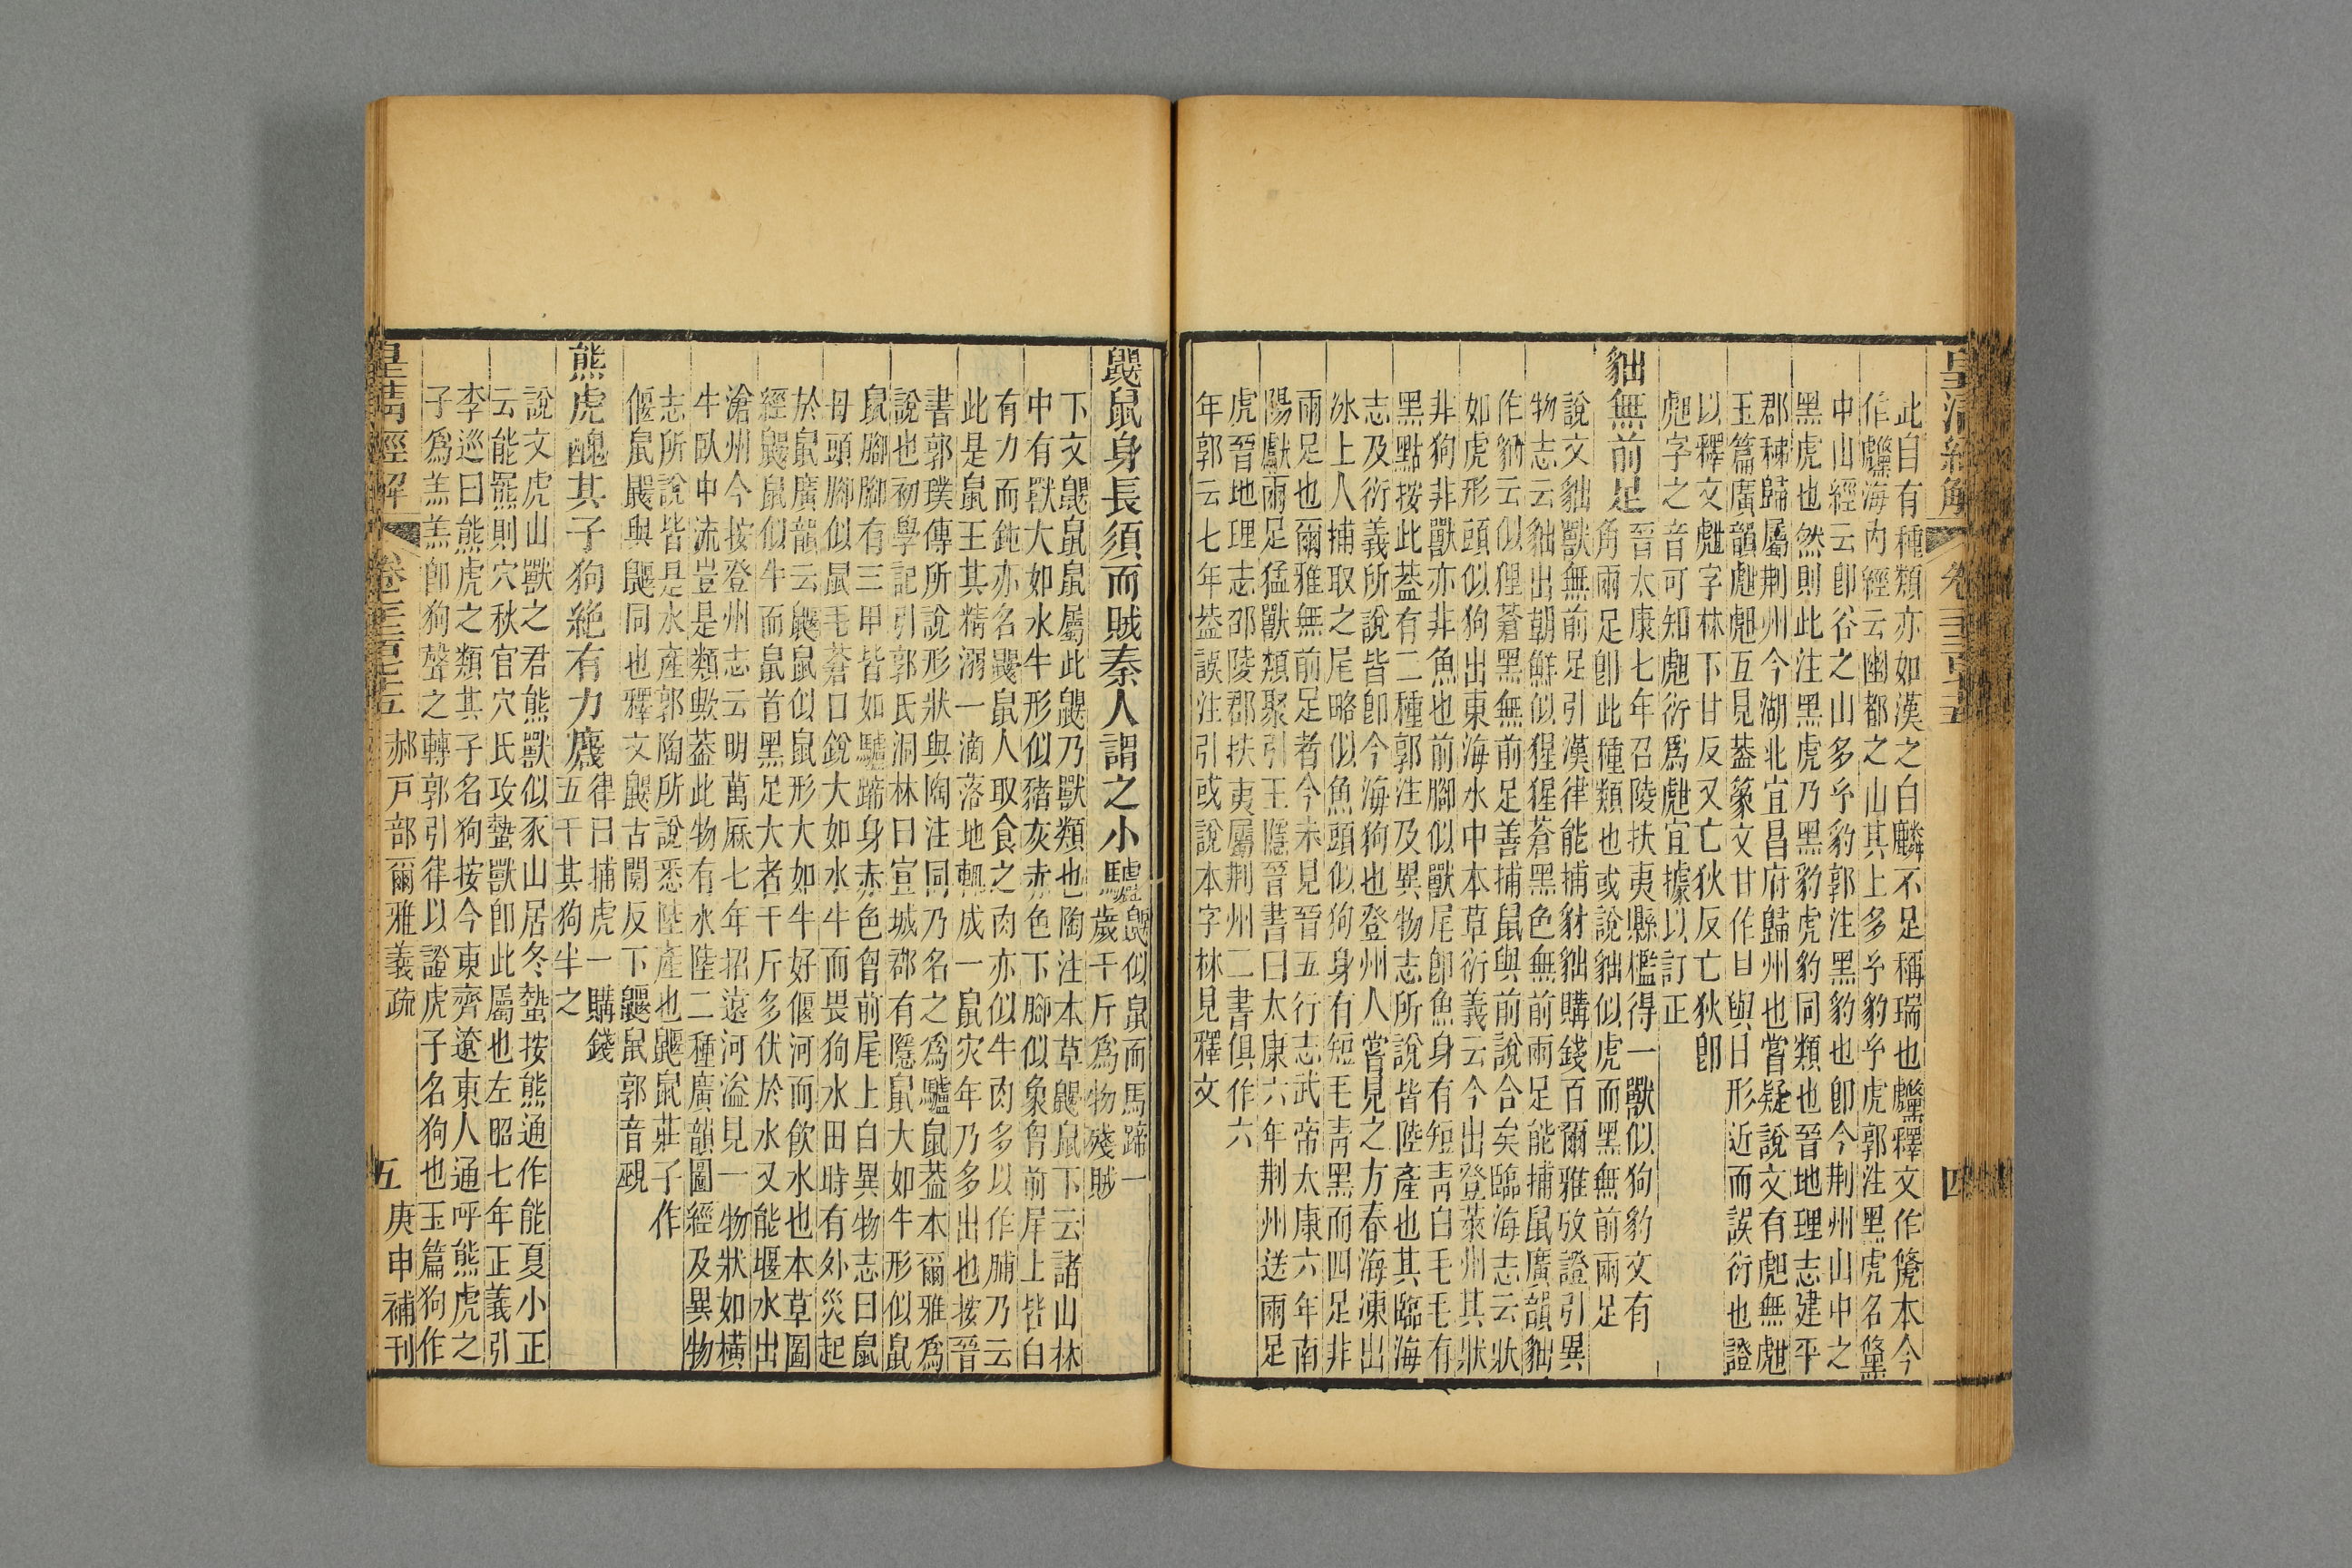 皇清經解 卷一千二百七十五 四
此自有種類亦如漢之白麟不足稱瑞也虪釋文作虦本今
作虪海內經云幽都之山其上多玄豹玄虎郭注黑虎名虪
中山經云卽谷之山多玄豹郭注黑豹也卽今荆州山中之
黑虎也然則此注黑虎乃黑豹虎豹同類也晉地理志建平
郡秭歸屬荆州今湖北宜昌府歸州也嘗疑說文有虪無
玉篇廣韻互見葢篆文甘作曰與日形近而誤衍也證
以釋文字林下甘反又亡狄反亡狄卽
字之音可知衍爲宜據以訂正
貀無前足 晉太康七年召陵扶夷縣檻得一獸似狗豹文有
角兩足卽此種類也或說貀似虎而黑無前兩足
說文貀獸無前足引漢律能捕豺貀購錢百爾雅攷證引異
物志云貀出朝鮮似猩猩蒼黑色無前兩足能捕鼠廣韻貀
作豽云似狸蒼黑無前足善捕鼠與前說合矣臨海志云狀
如虎形頭似狗出東海水中本草衍義云今出登萊州其狀
非狗非獸亦非魚也前腳似獸尾卽魚身有短青白毛毛有
黑點按此葢有二種郭注及異物志所說皆陸產也其臨海
志及衍義所說皆卽今海狗也登州人嘗見之方春海凍出
冰上人捕取之尾略似魚頭似狗身有短毛青黑而四足非
兩足也爾雅無前足者今未見晉五行志武帝太康六年南
陽獻兩足猛獸類聚引王隱晉書曰太康六年荆州送兩足
虎晉地理志邵陵郡扶夷屬荆州二書俱作六
年郭云七年葢誤注引或說本字林見釋文
鼳鼠身長須而賊秦人謂之小驢 鼳似鼠而馬蹄一
歲千斤爲物殘賊
下文鼳鼠鼠屬此鼳乃獸類也陶注本草鼴鼠下云諸山林
中有獸大如水牛形似豬灰赤色下腳似象胷前尾上皆白
有力而鈍亦名鼴鼠人取食之肉亦似牛肉多以作脯乃云
此是鼠王其精溺一滴落地輒成一鼠灾年乃多出也按晉
書郭璞傳所說形狀與陶注同乃名之爲驢鼠葢本爾雅爲
說也初學記引郭氏洞林曰宣城郡有隱鼠大如牛形似鼠
鼠腳腳有三甲皆如驢蹄身赤色胷前尾上白異物志曰鼠
母頭腳似鼠毛蒼口銳大如水牛而畏狗水田時有外災起
於鼠廣韻云鼴鼠似鼠形大如牛好偃河而飲水也本草圖
經鼴鼠似牛而鼠首黑足大者千斤多伏於水又能堰水出
滄州今按登州志云明萬厤七年招遠河溢見一物狀如橫
牛臥中流豈是類歟葢此物有水陸二種廣韻圖經及異物
志所說皆是水產郭陶所說悉陸產也鼴鼠莊子作
偃鼠鼹與鼴同也釋文鼳古闃反下鼴鼠郭音覡
熊虎醜其子狗絕有力麙 律曰捕虎一購錢
五千其狗半之
說文虎山獸之君熊獸似豕山居冬蟄按熊通作能夏小正
云能羆則穴秋官穴氏攻蟄獸卽此屬也左昭七年正義引
李巡曰熊虎之類其子名狗按今東齊遼東人通呼熊虎之
子爲羔羔卽狗聲之轉郭引律以證虎子名狗也玉篇狗作
皇清經解 卷一千二百七十五 郝戶部爾雅義疏 五 庚申補刊